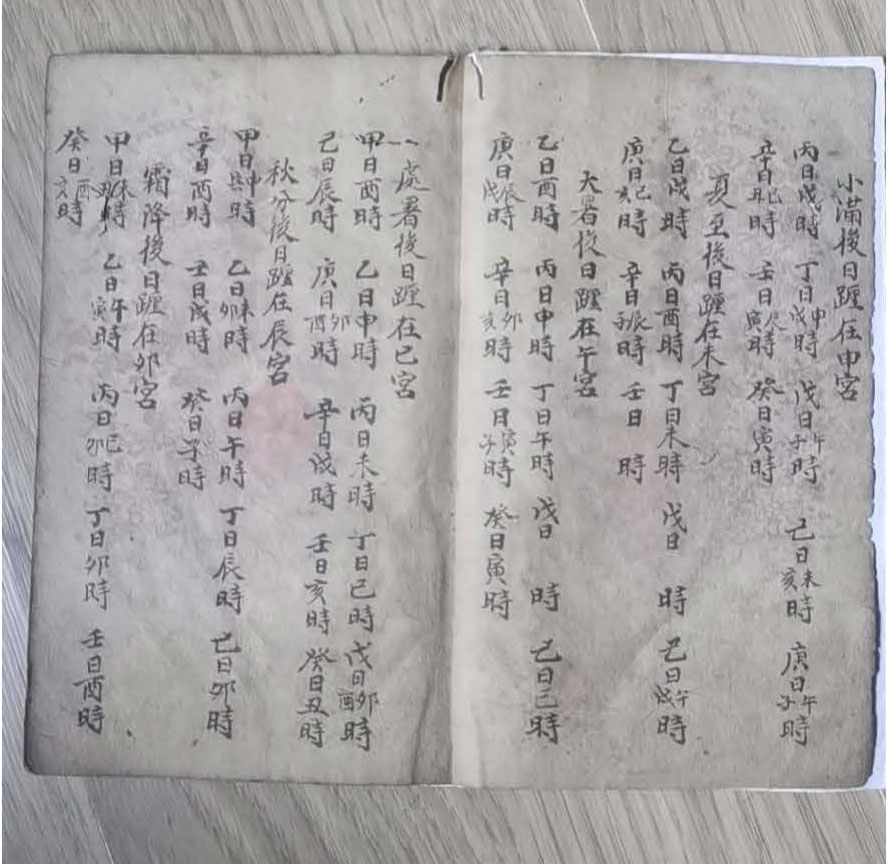 小滿後日躔在申宮
丙日戌時 丁日申戌時 戊日午子時 己日未亥時 庚日午子時
辛日巳丑時 壬日寅時 癸日寅時
夏至後日躔在未宮
乙日戌時 丙日酉時 丁日未時 戊日 時 己日午戌時
庚日巳亥時 辛日辰子時 壬日 時
大暑後日躔在午宮
乙日酉時 丙日申時 丁日午時 戊日 時 己日巳時
庚日辰戌時 辛日卯亥時 壬日寅子時 癸日寅時
一處暑後日躔在巳宮
甲日酉時 乙日申時 丙日未時 丁日巳時 戊日卯酉時
己日辰時 庚日卯酉時 辛日戌時 壬日亥時 癸日丑時
秋分後日躔在辰宮
甲日申時 乙日未卯時 丙日午時 丁日辰時 己日卯時
辛日酉時 壬日戌時 癸日子時
霜降後日躔在卯宮
甲日未時 乙日午寅時 丙日巳卯時 丁日卯時 壬日酉時
癸日酉亥時